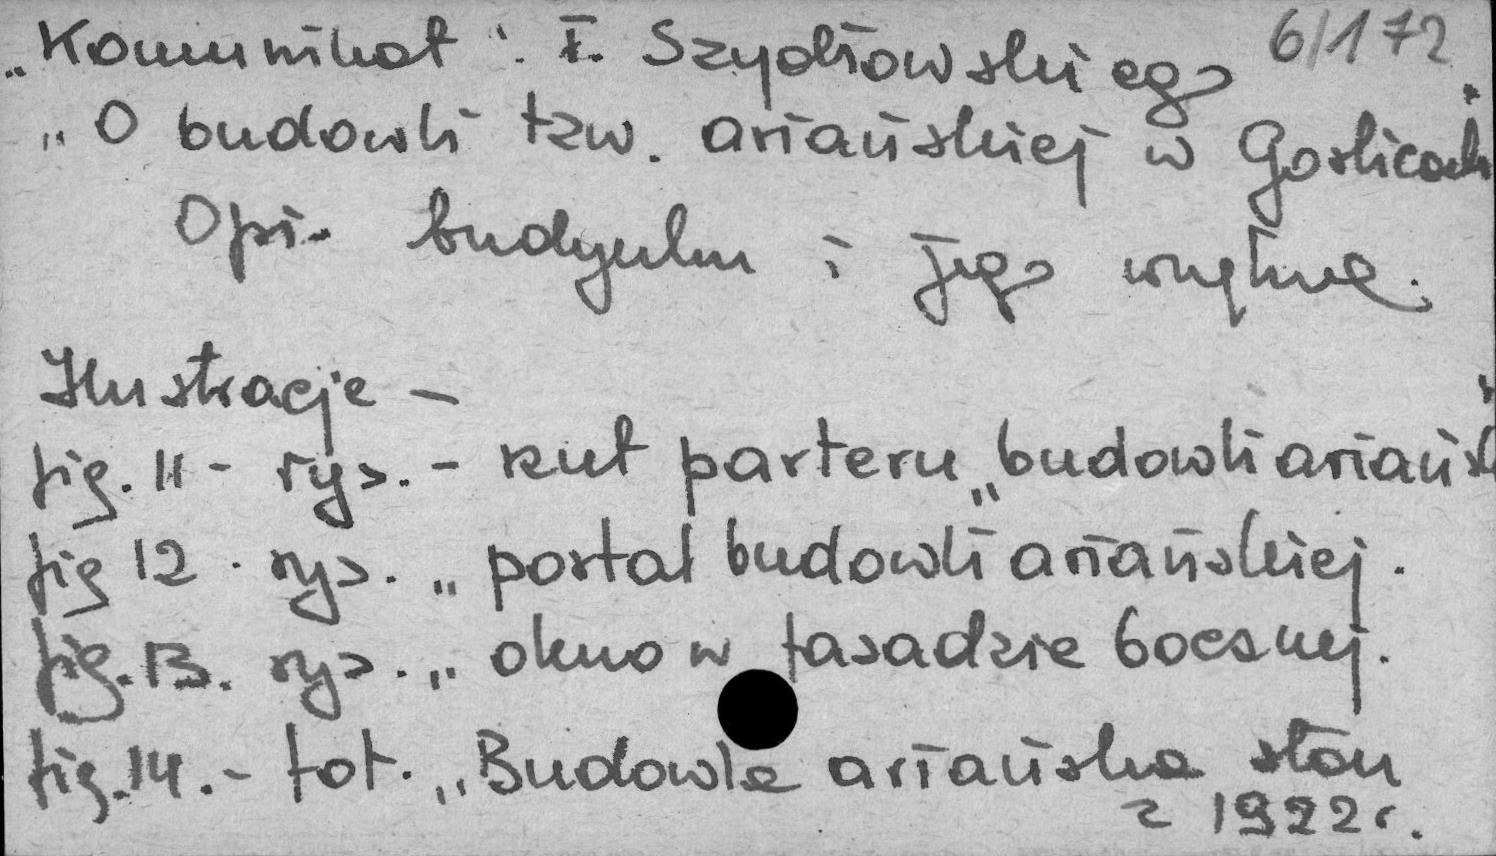 6/172
„Komunikat”. T. Szydłowskiego
„O budowli tzw. ariańskiej w Gorlicach”.
Opis budynku i jego wnętrza.
Ilustracje -
fig. 11 - rys. - rzut parteru „budowli ariańsk”
fig 12. rys. „ portal budowli ariańskiej.
fig. 13. rys. „ okno w fasadzie bocznej.
fig. 14. - fot. „Budowla ariańska stan
z 1922 r.